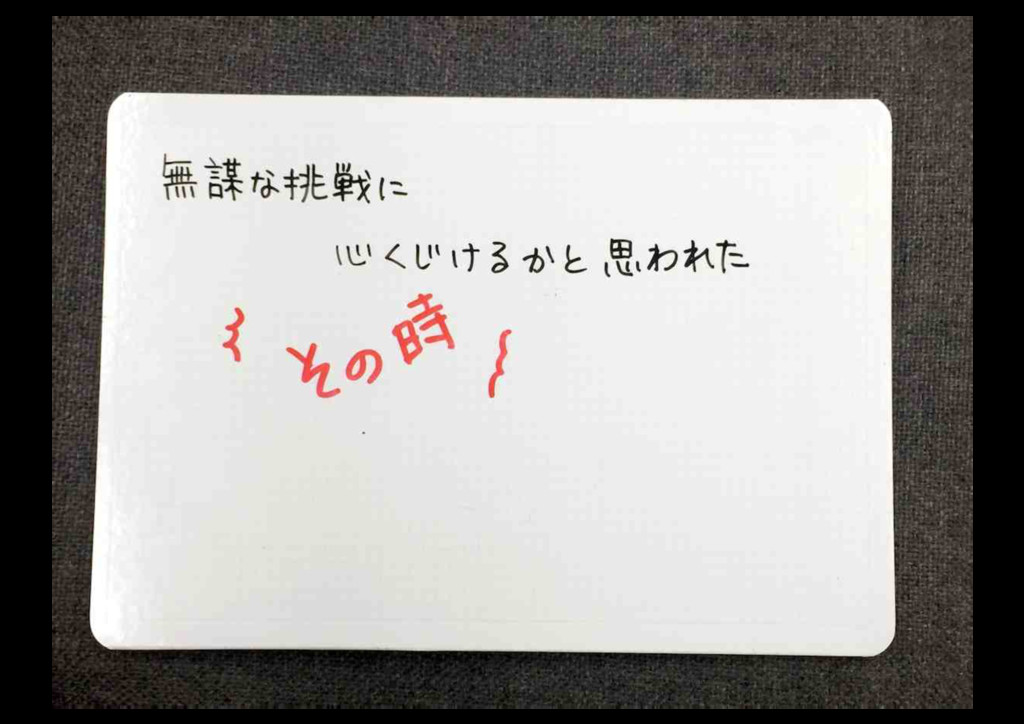 無謀な挑戦に
心くじけるかと思われた
{ その時 }